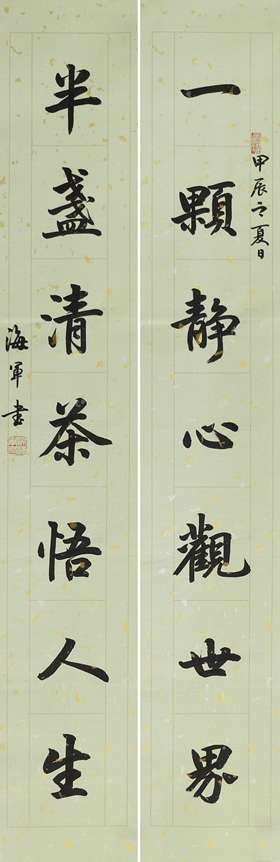 甲辰之夏日
一顆静心觀世界
半盞清茶悟人生
海軍書